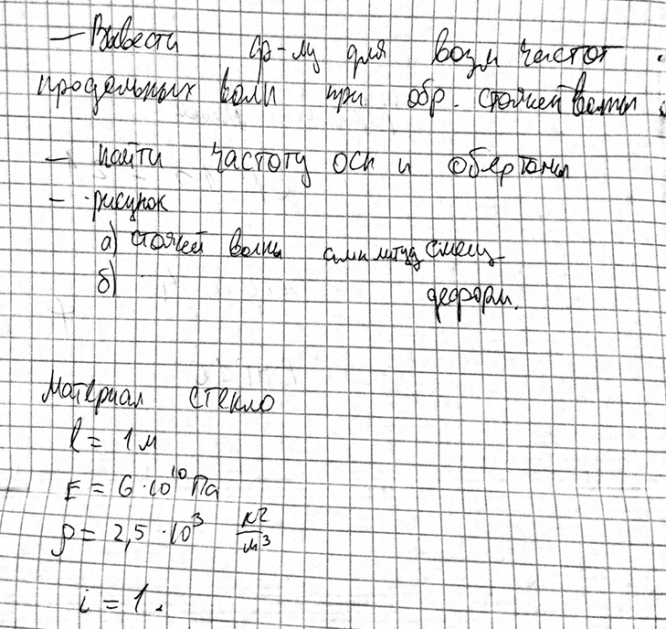 — Вывести ф-лу для возм частот
продольных волн при обр. стоячей волны
— найти частоту осн и обертоны
— рисунок
а) стоячей волны амплитуд смещ
б) деформ.
Материал стекло
l = 1 м
E = 6·10¹⁰ Па
ρ = 2,5·10³ кг/м³
i = 1.